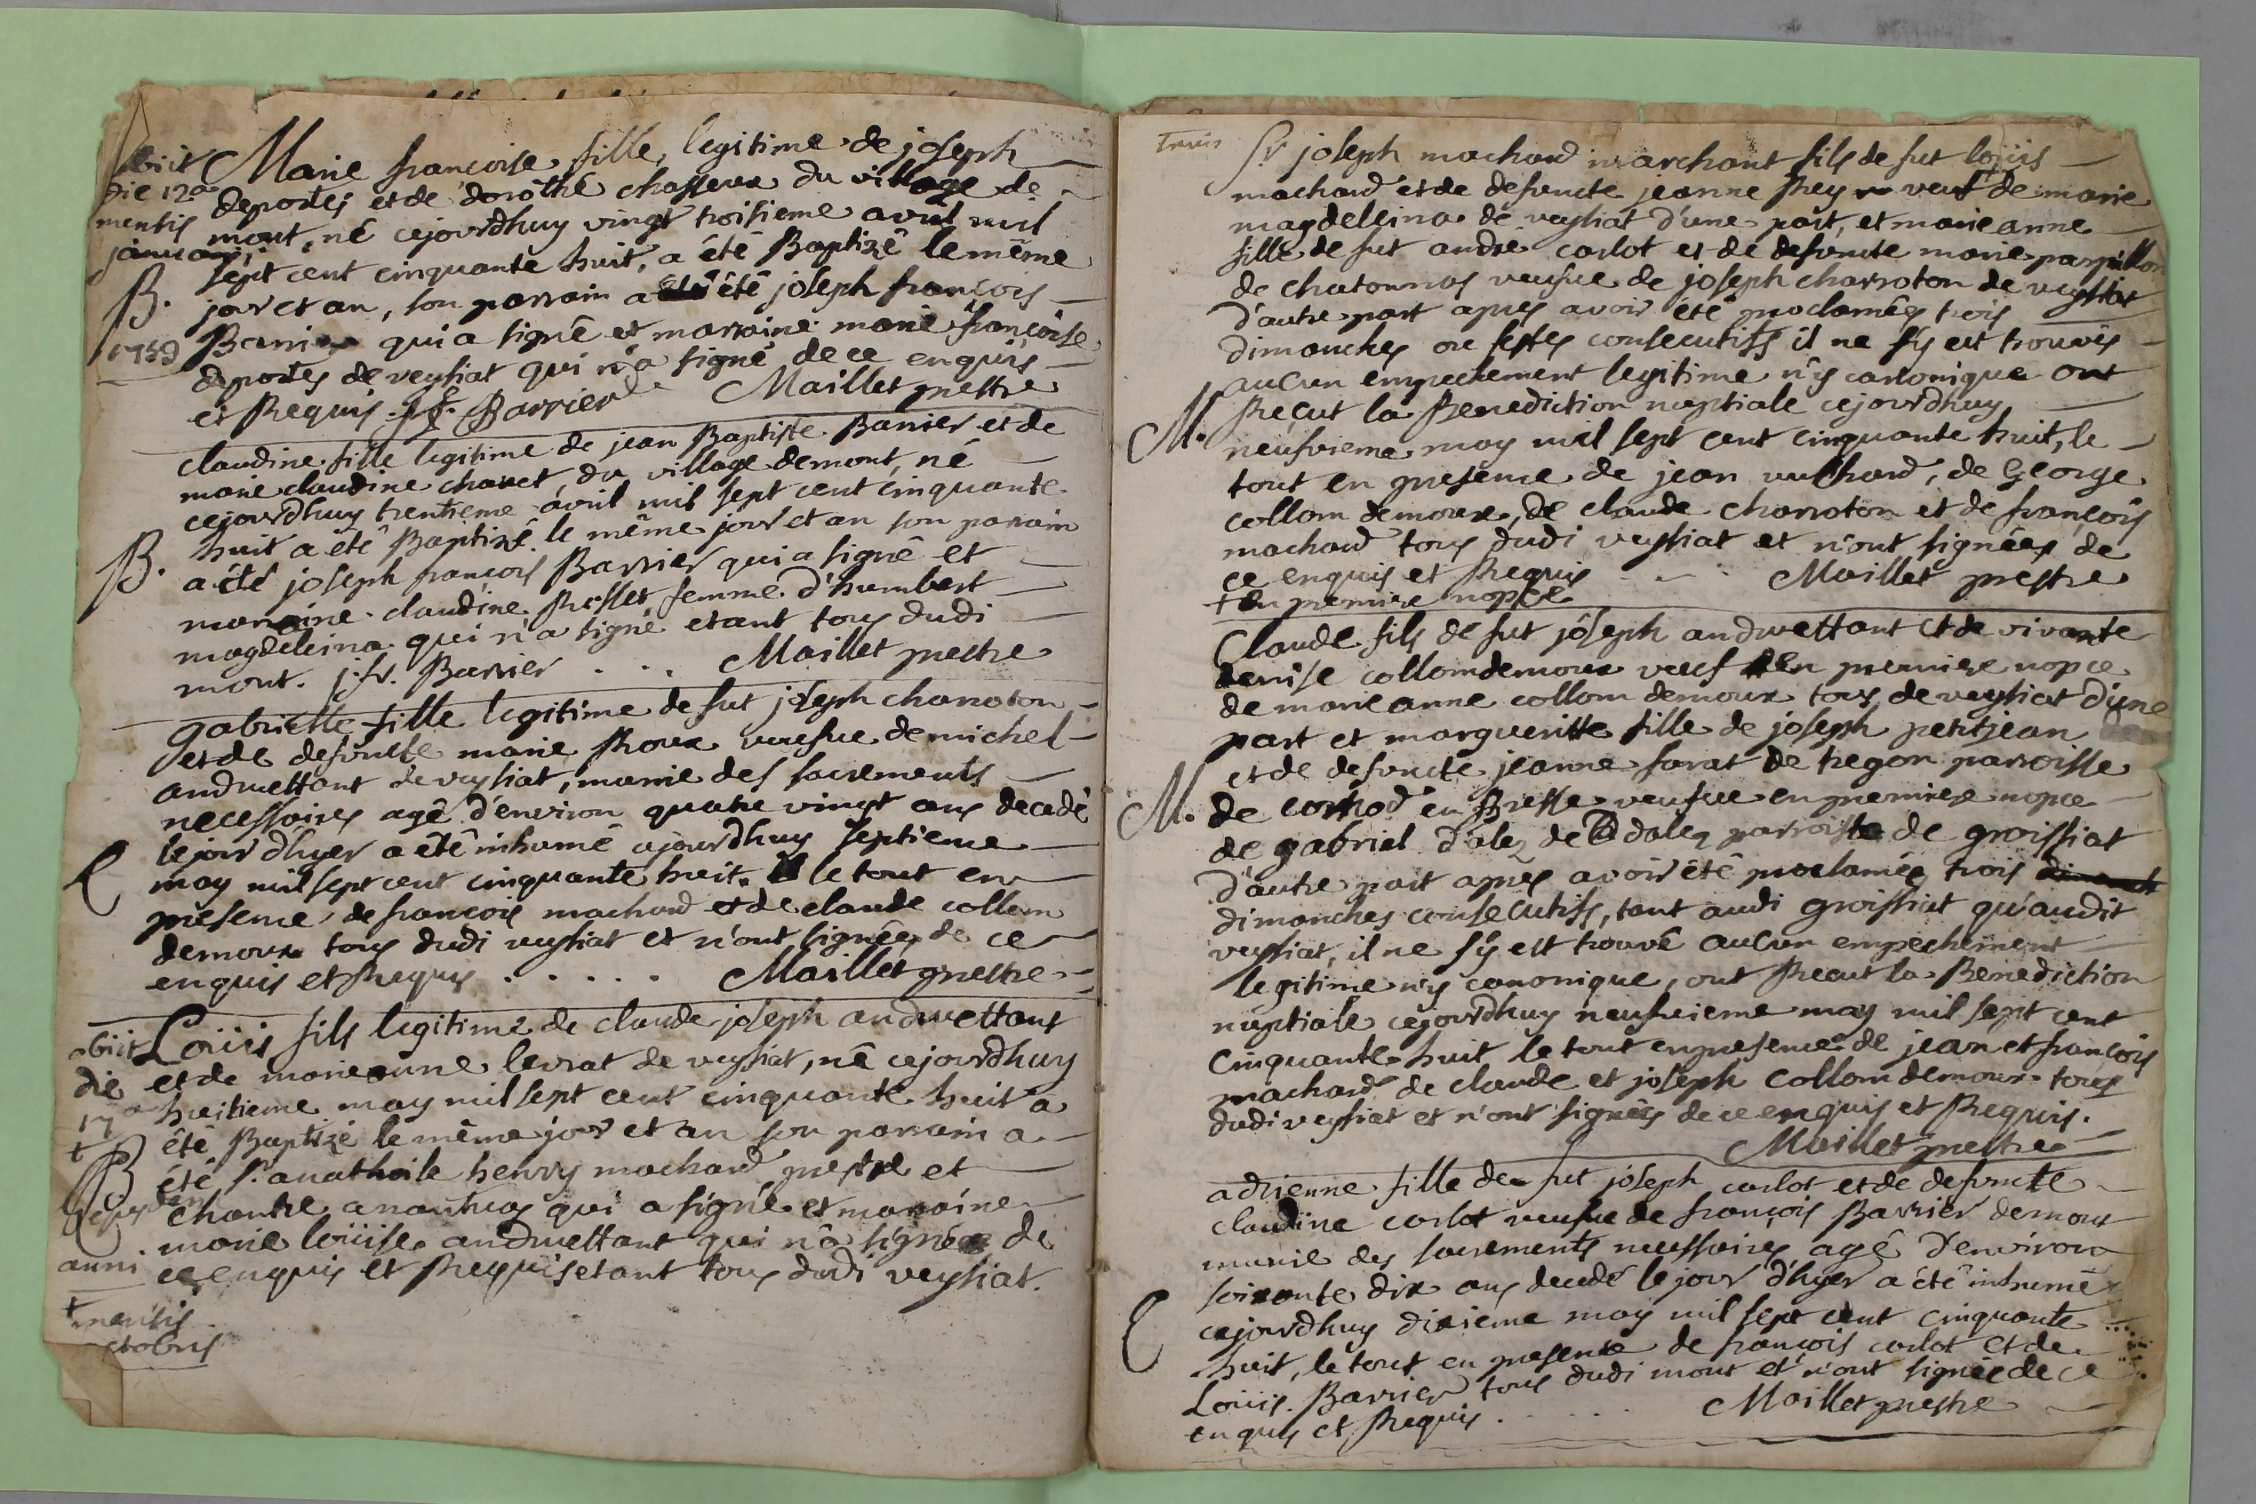 obiit
die 12a
mensis
januarii
B.
1759
Marie francoise fille, legitime de joseph
deportes et de dorothé chasseux du village de
mont, né cejourdhuy vingt troisieme avril mil
sept cent cinquante huit, a été Baptizé le même
jour et an, son parrain a été joseph françois
Barrier qui a signé et marraine marie françoise
deportes de veysiat qui n'a signé de ce enquis
et Requis. j.f. Barrier Maillet prestre
B.
claudine fille legitime de jean Baptiste Barrier et de
marie claudine chavet, du village demont, né
cejourdhuy trentieme avril mil sept cent cinquante
huit a été Baptizé le même jour et an son parrain
a été joseph françois Barrier qui a signé et
marraine claudine Rosset femme d'humbert
magdeleina qui n'a signé etant tous dudi
mont. j. fr. Barrier . . . Maillet prestre
gabrielle fille legitime de fut joseph charroton
et de defuncte marie Roux veufue de michel
andruettant de veysiat, munie des sacrements
necessaires agé d'environ quatre vingt ans decedé
le jour d'hyer a été inhumé cejourdhuy septieme
may mil sept cent cinquante huit. le tout en
presence de françois machard et de claude collom
demoux tous dudi veysiat et n'ont signées de ce
enquis et Requis . . . . . Maillet prestre
obiit
die
17a
+
B
anni
+ mensis
octobris
Loüis fils legitime de claude joseph andruettant
et de marie anne levrat de veysiat, né cejourdhuy
huitieme may mil sept cent cinquante huit a
été Baptizé le même jour et an son parrain a
été Sr. anathoile henry machard prestre et
chantre a nantuas qui a signé et marraine
marie loüise andruettant qui n'a signée de
ce enquis et Requis etant tous dudi veysiat.
Sr. joseph machard marchant fils de fut loüis
machard et de defuncte jeanne Rey veuf de marie
magdelleina de veysiat d'une part, et marie anne
fille de fut andré carlot et de defuncte marie parpillon
de chatonnas veufue de joseph charroton de veysiat
d'autre part apres avoir été proclamées trois
dimanches ou festes consecutifs il ne s'y est trouvés
aucun empechement legitime n'y canonique ont
M.
Reçut la Benediction nuptiale cejourdhuy
neufvieme may mil sept cent cinquante huit, le
tout en presence de jean vuchard, de George
collom demoux, de claude charroton et de françois
machard tous dudi veysiat et n'ont signées de
ce enquis et Requis . . . Maillet prestre
+ en premire nopce
Claude fils de fut joseph andruettant et de vivante
denise collomdemoux veuf en premiere nopce
de marie anne collom demoux tous de veysiat d'une
part et margueritte fille de joseph petitjean
et de defuncte jeanne farat de tregon parroisse
M.
de corrod en Bresse veufue en premiere nopce
de gabriel dalez de dalez parroisse de groissiat
d'autre part apres avoir été proclamées trois
dimanches consecutifs, tant audi groissiat qu'audit
veysiat, il ne s'y est trouvé aucun empechement
legitime n'y canonique, ont Recut la Benediction
nuptiale cejourdhuy neufvieme may mil sept cent
cinquante huit le tout en presence de jean et françois
machard de claude et joseph collom demoux tous
dudi veysiat et n'ont signées de ce enquis et Requis.
Maillet prestre
adrienne fille de fut joseph carlot et de defuncte
claudine carlot veufue de françois Barrier demont
munie des sacrements necessaires agé d'environ
soixante dix ans decedé le jour d'hyer a été inhumé
cejourdhuy dixieme may mil sept cent cinquante
huit, le tout en presence de françois carlot et de
Loüis Barrier tous dudi mont et n'ont signées de ce
enquis et Requis . . . . . Maillet prestre